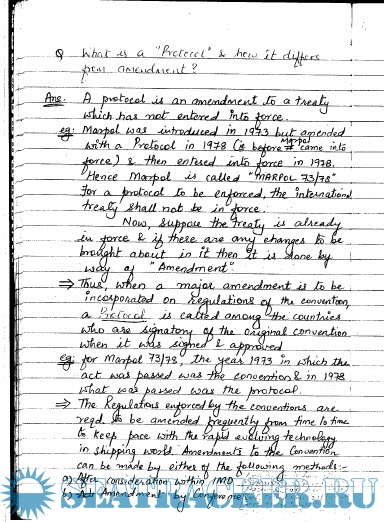 Q What is a "Protocol" & how it differs
from amendment?
Ans. A protocol is an amendment to a treaty
which has not entered into force.
eg: Marpol was introduced in 1973 but amended
with a Protocol in 1978 (is before Marpol came into
force) & then entered into force in 1978.
Hence Marpol is called "MARPOL 73/78"
For a protocol to be enforced, the international
treaty shall not be in force.
Now, suppose the treaty is already
in force & if there are any changes to be
brought about in it then it is done by
way of "Amendment".
⇒ Thus, when a major amendment is to be
incorporated on regulations of the convention,
a Protocol is called among the countries
who are signatory of the original convention
when it was signed & approved
eg: for Marpol 73/78, the year 1973 in which the
act was passed was the convention & in 1978
what was passed was the protocol.
⇒ The Regulations enforced by the conventions are
reqd. to be amended frequently from time to time
to keep pace with the rapid evolving technology
in shipping world. Amendments to the Convention
can be made by either of the following methods:-
a) After consideration within IMO
b) An Amendment by Conference.
SEATRACKER.RU